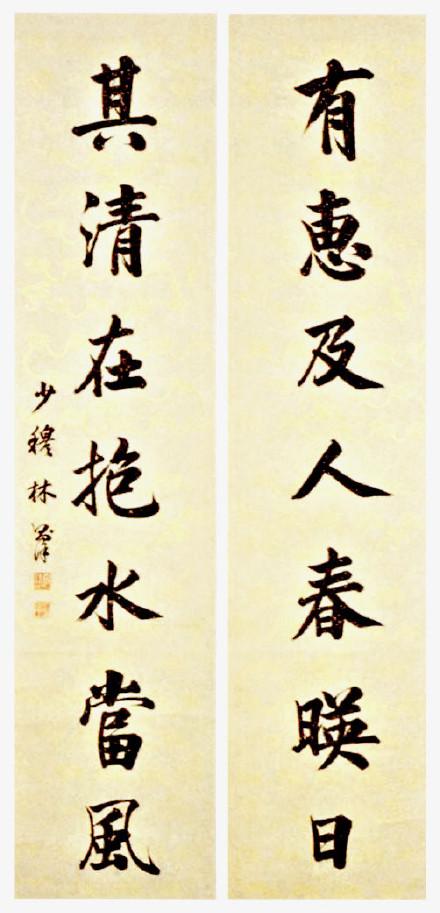 有惠及人春暎日
其清在抱水當風
少穆林則徐